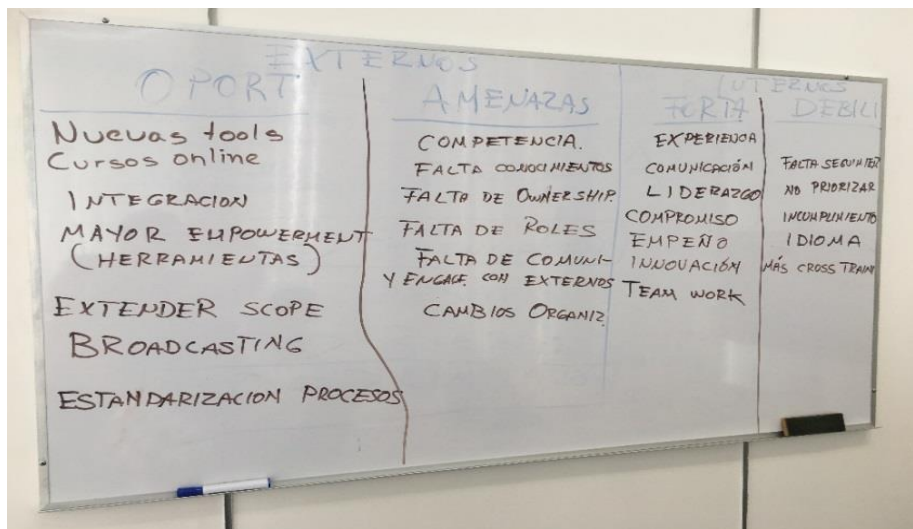 EXTERNOS
INTERNOS
OPORT
Nuevas tools
Cursos online
INTEGRACION
MAYOR EMPOWERMENT
(HERRAMIENTAS)
EXTENDER SCOPE
BROADCASTING
ESTANDARIZACION PROCESOS
AMENAZAS
COMPETENCIA.
FALTA CONOCIMIENTOS
FALTA DE OWNERSHIP.
FALTA DE ROLES
FALTA DE COMUNI-
Y ENGAGE. CON EXTERNOS
CAMBIOS ORGANIZ.
FORTA
EXPERIENCIA
COMUNICACIÓN
LIDERAZGO
COMPROMISO
EMPEÑO
INNOVACIÓN
TEAM WORK
DEBILI
FALTA
NO PRIORIZAR
INCUMPLIMIENTO
IDIOMA
MÁS CROSS TRAIN